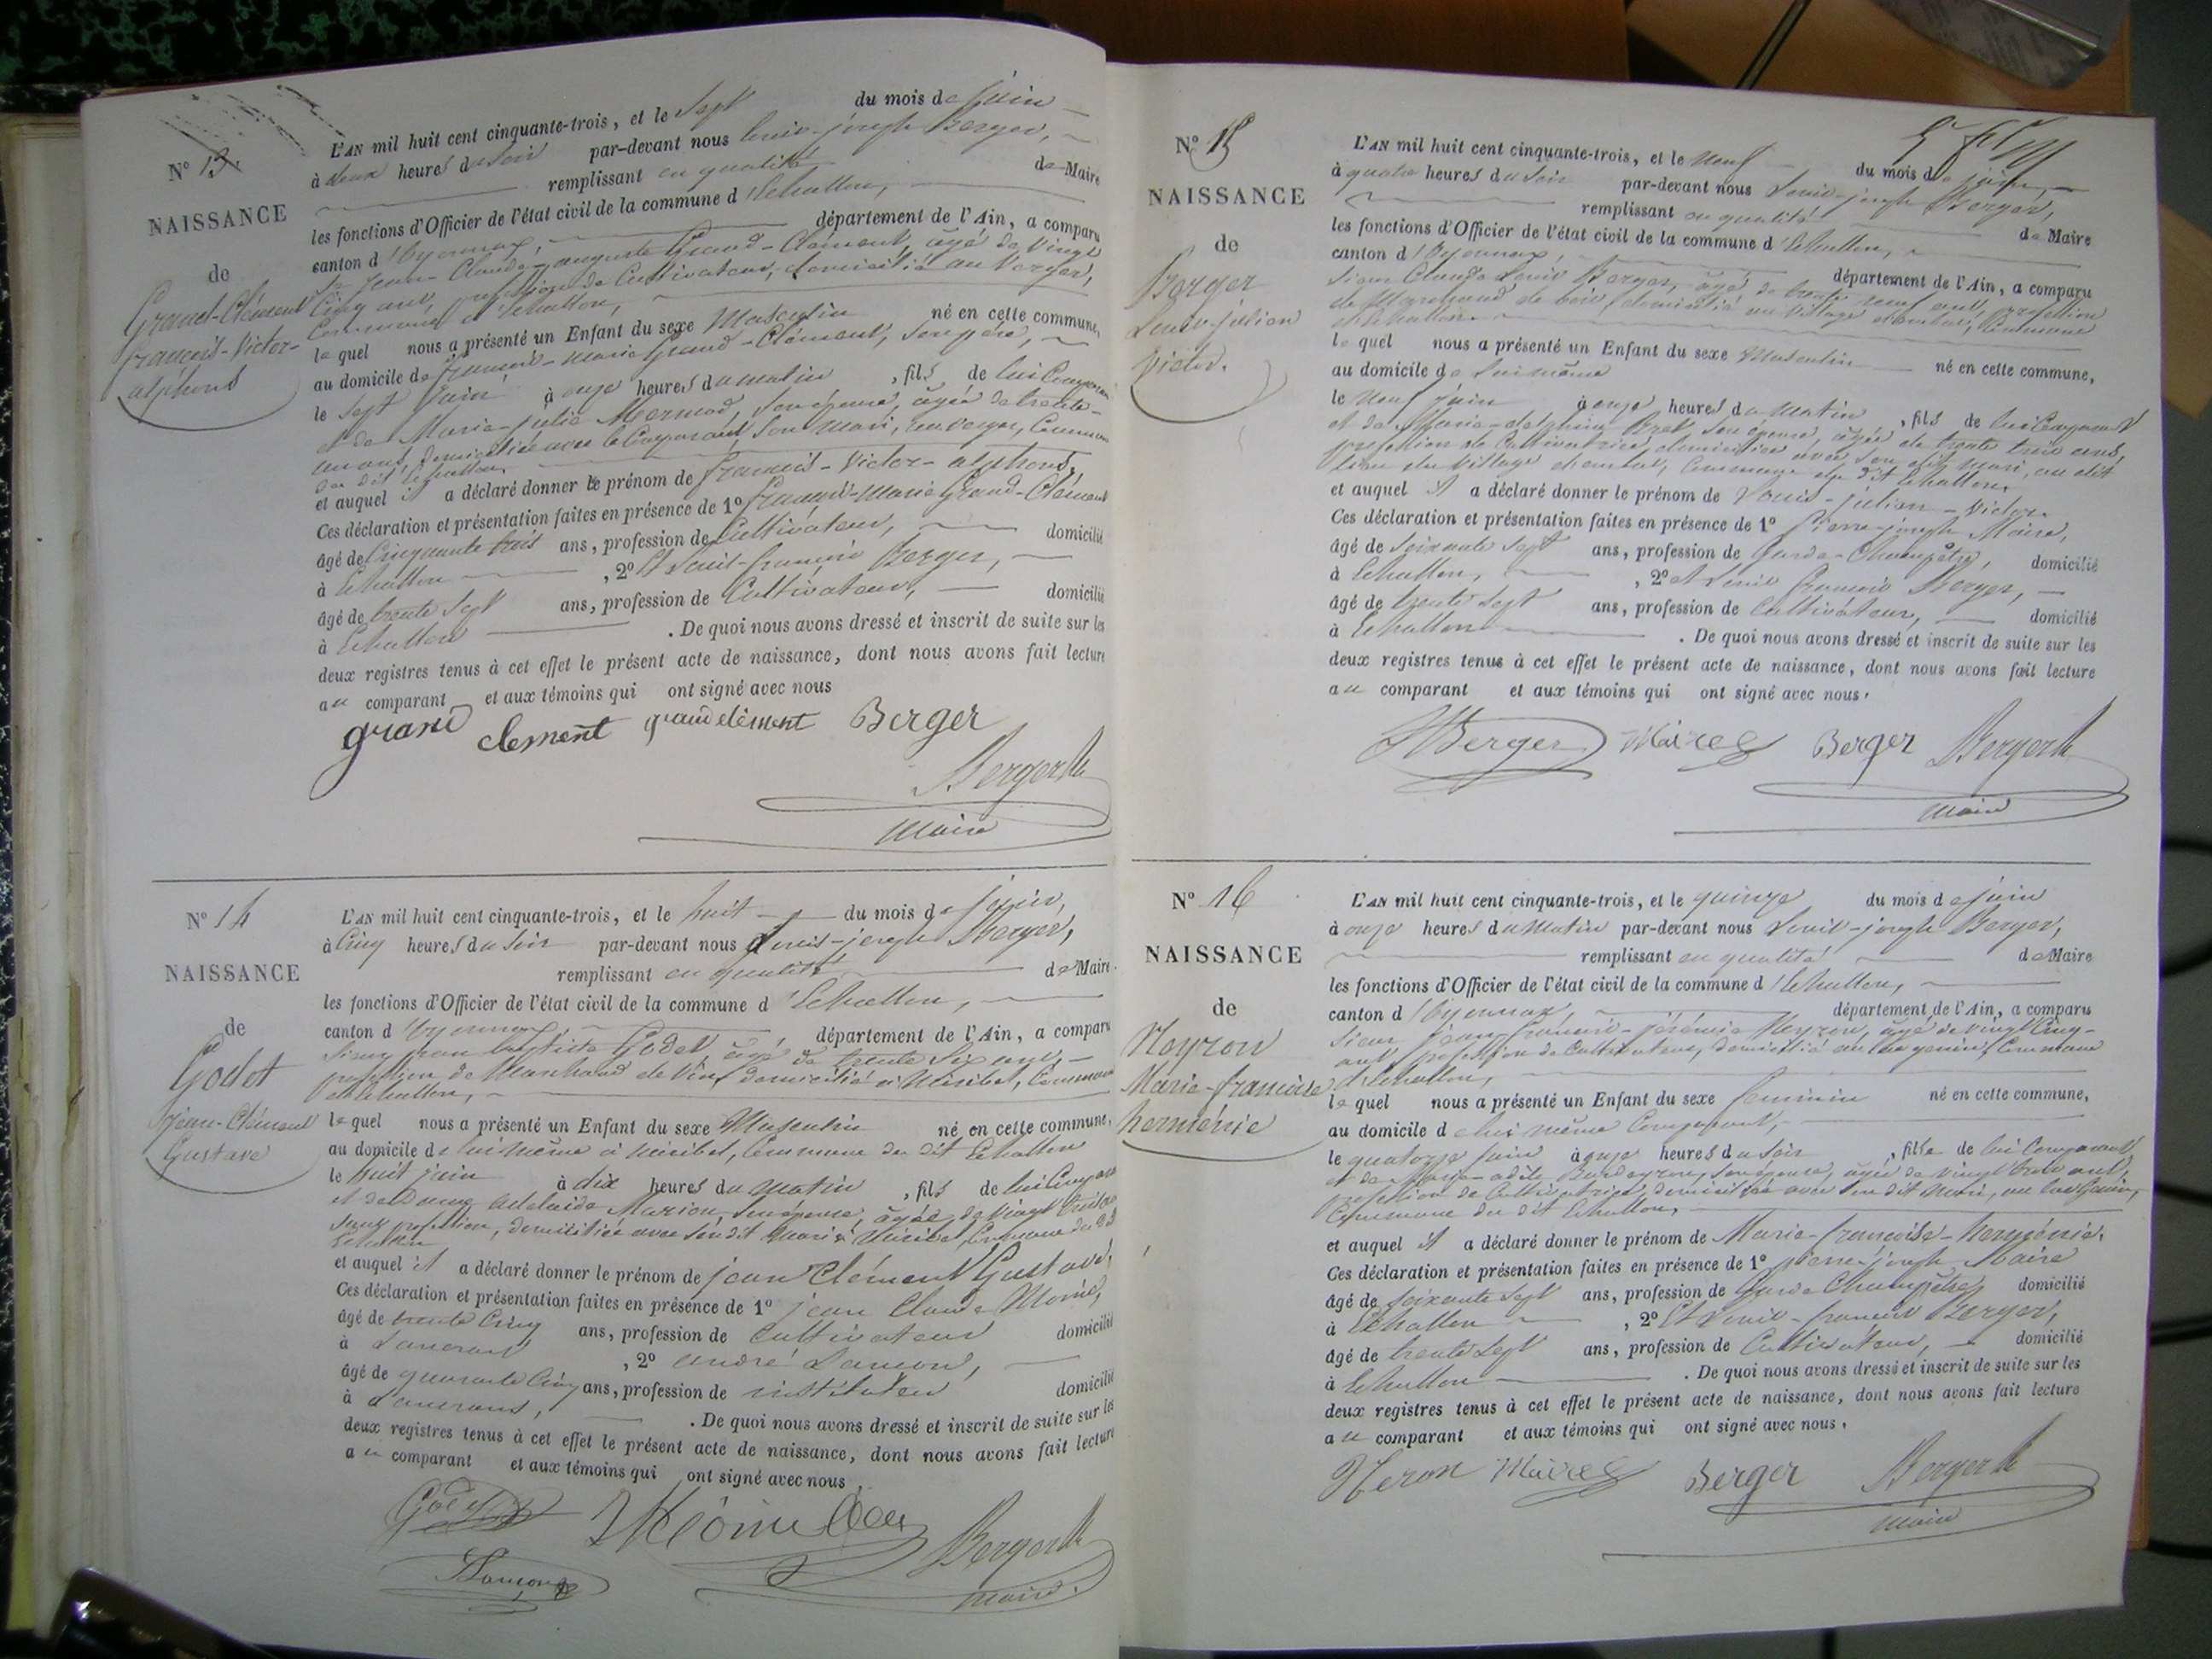 N° 13.
NAISSANCE
de
Grand-Clément
françois-Victor-
alphons
L'AN mil huit cent cinquante-trois, et le Sept du mois de juin
à deux heures du Soir par-devant nous Louis-joseph Berger,
remplissant en qualité de Maire
les fonctions d'Officier de l'état civil de la commune d'Echallon,
canton d'Oyonnax, département de l'Ain, a comparu
Sr Jean-Claude-auguste Grand-Clément, âgé de Vingt
Cinq ans, profession de Cultivateur, domicilié au Verger,
Commune d'Echallon,
lequel nous a présenté un Enfant du sexe Masculin né en cette commune,
au domicile de françois-marie Grand-Clément, son père,
le Sept juin à onze heures du matin, fils de lui Comparant
et de Marie-julie Mermod, son épouse, âgée de trente-
un ans, domiciliée avec le Comparant, son mari, au Verger, Commune
du dit Echallon,
et auquel il a déclaré donner le prénom de françois-Victor-alphons,
Ces déclaration et présentation faites en présence de 1° françois-Marie Grand-Clément
âgé de Cinquante trois ans, profession de Cultivateur, domicilié
à Echallon, 2° Et Louis-françois Berger,
âgé de trente Sept ans, profession de Cultivateur, domicilié
à Echallon. De quoi nous avons dressé et inscrit de suite sur les
deux registres tenus à cet effet le présent acte de naissance, dont nous avons fait lecture
au comparant et aux témoins qui ont signé avec nous
grand clement grandclément Berger
Berger
Maire
N° 14
NAISSANCE
de
Godet
Jean-Clément
Gustave
L'AN mil huit cent cinquante-trois, et le huit du mois de juin,
à Cinq heures du Soir par-devant nous Louis-joseph Berger,
remplissant en qualité de Maire
les fonctions d'Officier de l'état civil de la commune d'Echallon,
canton d'Oyonnax département de l'Ain, a comparu
Sieur jean baptiste Godet, âgé de trente Six ans,
profession de Marchand de Vin, domicilié à Miribel, Commune
d'Echallon,
lequel nous a présenté un Enfant du sexe Masculin né en cette commune,
au domicile de lui même à Miribel, Commune du dit Echallon
le huit juin à dix heures du matin, fils de lui Comparant
et de Dame adelaide Marion, son épouse, âgée de vingt trois ans
Sans profession, domiciliée avec son dit Mari à Miribel, Commune du dit
Echallon
et auquel il a déclaré donner le prénom de jean Clément Gustave,
Ces déclaration et présentation faites en présence de 1° jean Claude
âgé de trente Cinq ans, profession de Cultivateur domicilié
à Lancrans, 2° andré
âgé de quarante Cinq ans, profession de instituteur domicilié
à Lancrans,. De quoi nous avons dressé et inscrit de suite sur les
deux registres tenus à cet effet le présent acte de naissance, dont nous avons fait lecture
au comparant et aux témoins qui ont signé avec nous,
Godet
Berger
Maire.
N° 15
NAISSANCE
de
Berger
Louis-julien
Victor.
L'AN mil huit cent cinquante-trois, et le Neuf du mois de juin,
à quatre heures du Soir par-devant nous Louis-joseph Berger,
remplissant en qualité de Maire
les fonctions d'Officier de l'état civil de la commune d'Echallon,
canton d'Oyonnax, département de l'Ain, a comparu
Sieur Claude Louis Berger, âgé de trente neuf ans, profession
de Marchand de bois, domicilié au Village, Commune
d'Echallon.
lequel nous a présenté un Enfant du sexe Masculin né en cette commune,
au domicile de lui même
le Neuf juin à onze heures du matin, fils de lui Comparant
et de Marie-delphine son épouse, âgée de trente trois ans,
profession de Cultivatrice domiciliée avec son dit mari, au dit
lieu du Village, Commune du dit Echallon,
et auquel il a déclaré donner le prénom de Louis-julien-Victor.
Ces déclaration et présentation faites en présence de 1° pierre-joseph Maire,
âgé de Soixante Sept ans, profession de Garde-Champêtre, domicilié
à Echallon,, 2° et Louis françois Berger,
âgé de trente Sept ans, profession de Cultivateur, domicilié
à Echallon. De quoi nous avons dressé et inscrit de suite sur les
deux registres tenus à cet effet le présent acte de naissance, dont nous avons fait lecture
au comparant et aux témoins qui ont signé avec nous,
Berger Maire Berger Berger
Maire
N° 16
NAISSANCE
de
Neyron
Marie-françoise
herménie
L'AN mil huit cent cinquante-trois, et le quinze du mois de juin
à onze heures du Matin par-devant nous Louis-joseph Berger,
remplissant en qualité de Maire
les fonctions d'Officier de l'état civil de la commune d'Echallon,
canton d'Oyonnax département de l'Ain, a comparu
Sieur jean-françois-jérémie Neyron, âgé de vingt Cinq-
ans, profession de Cultivateur, domicilié au Commune
d'Echallon,
lequel nous a présenté un Enfant du sexe feminin né en cette commune,
au domicile de lui même Comparant,
le quatorze juin à onze heures du Soir, fille de lui Comparant
et de Marie-adèle son épouse, âgée de vingt trois ans,
profession de Cultivatrice, domiciliée avec son dit Mari, au
Commune du dit Echallon,
et auquel il a déclaré donner le prénom de Marie-françoise-herménie.
Ces déclaration et présentation faites en présence de 1° pierre-joseph Maire
âgé de Soixante Sept ans, profession de Garde Champêtre, domicilié
à Echallon, 2° Et Louis-françois Berger,
âgé de trente Sept ans, profession de Cultivateur, domicilié
à Echallon. De quoi nous avons dressé et inscrit de suite sur les
deux registres tenus à cet effet le présent acte de naissance, dont nous avons fait lecture
au comparant et aux témoins qui ont signé avec nous.
Neron Maire Berger Berger
Maire